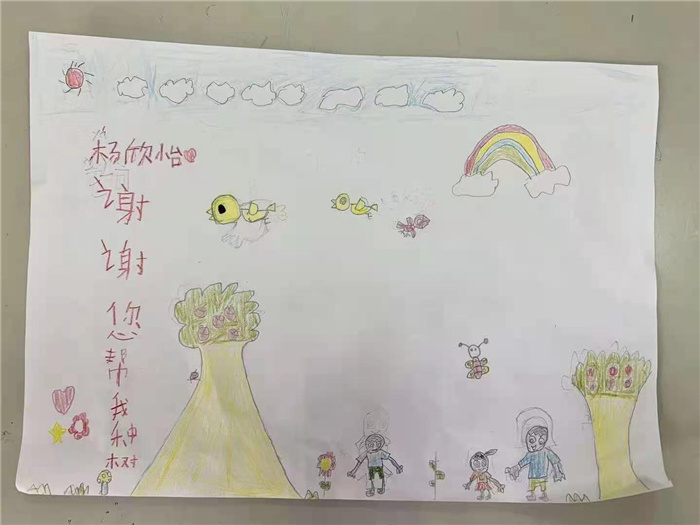 杨欣怡
谢谢您帮我种树